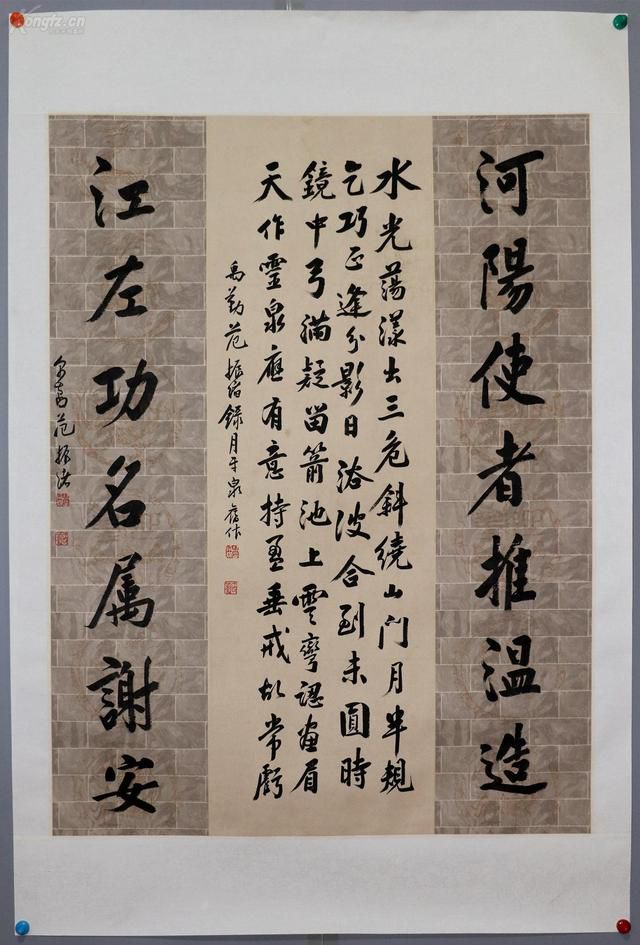 Kongfz.cn
河陽使者推温造
水光蕩漾出三危斜繞山門月半規
乞巧正逢分影日浴波合到未圓時
鏡中弓滿疑留箭池上雲彎認畫眉
天作靈泉應有意持盈垂戒故常虧
禹勤范振緒錄月牙泉舊作
江左功名属謝安
南皋范振緒